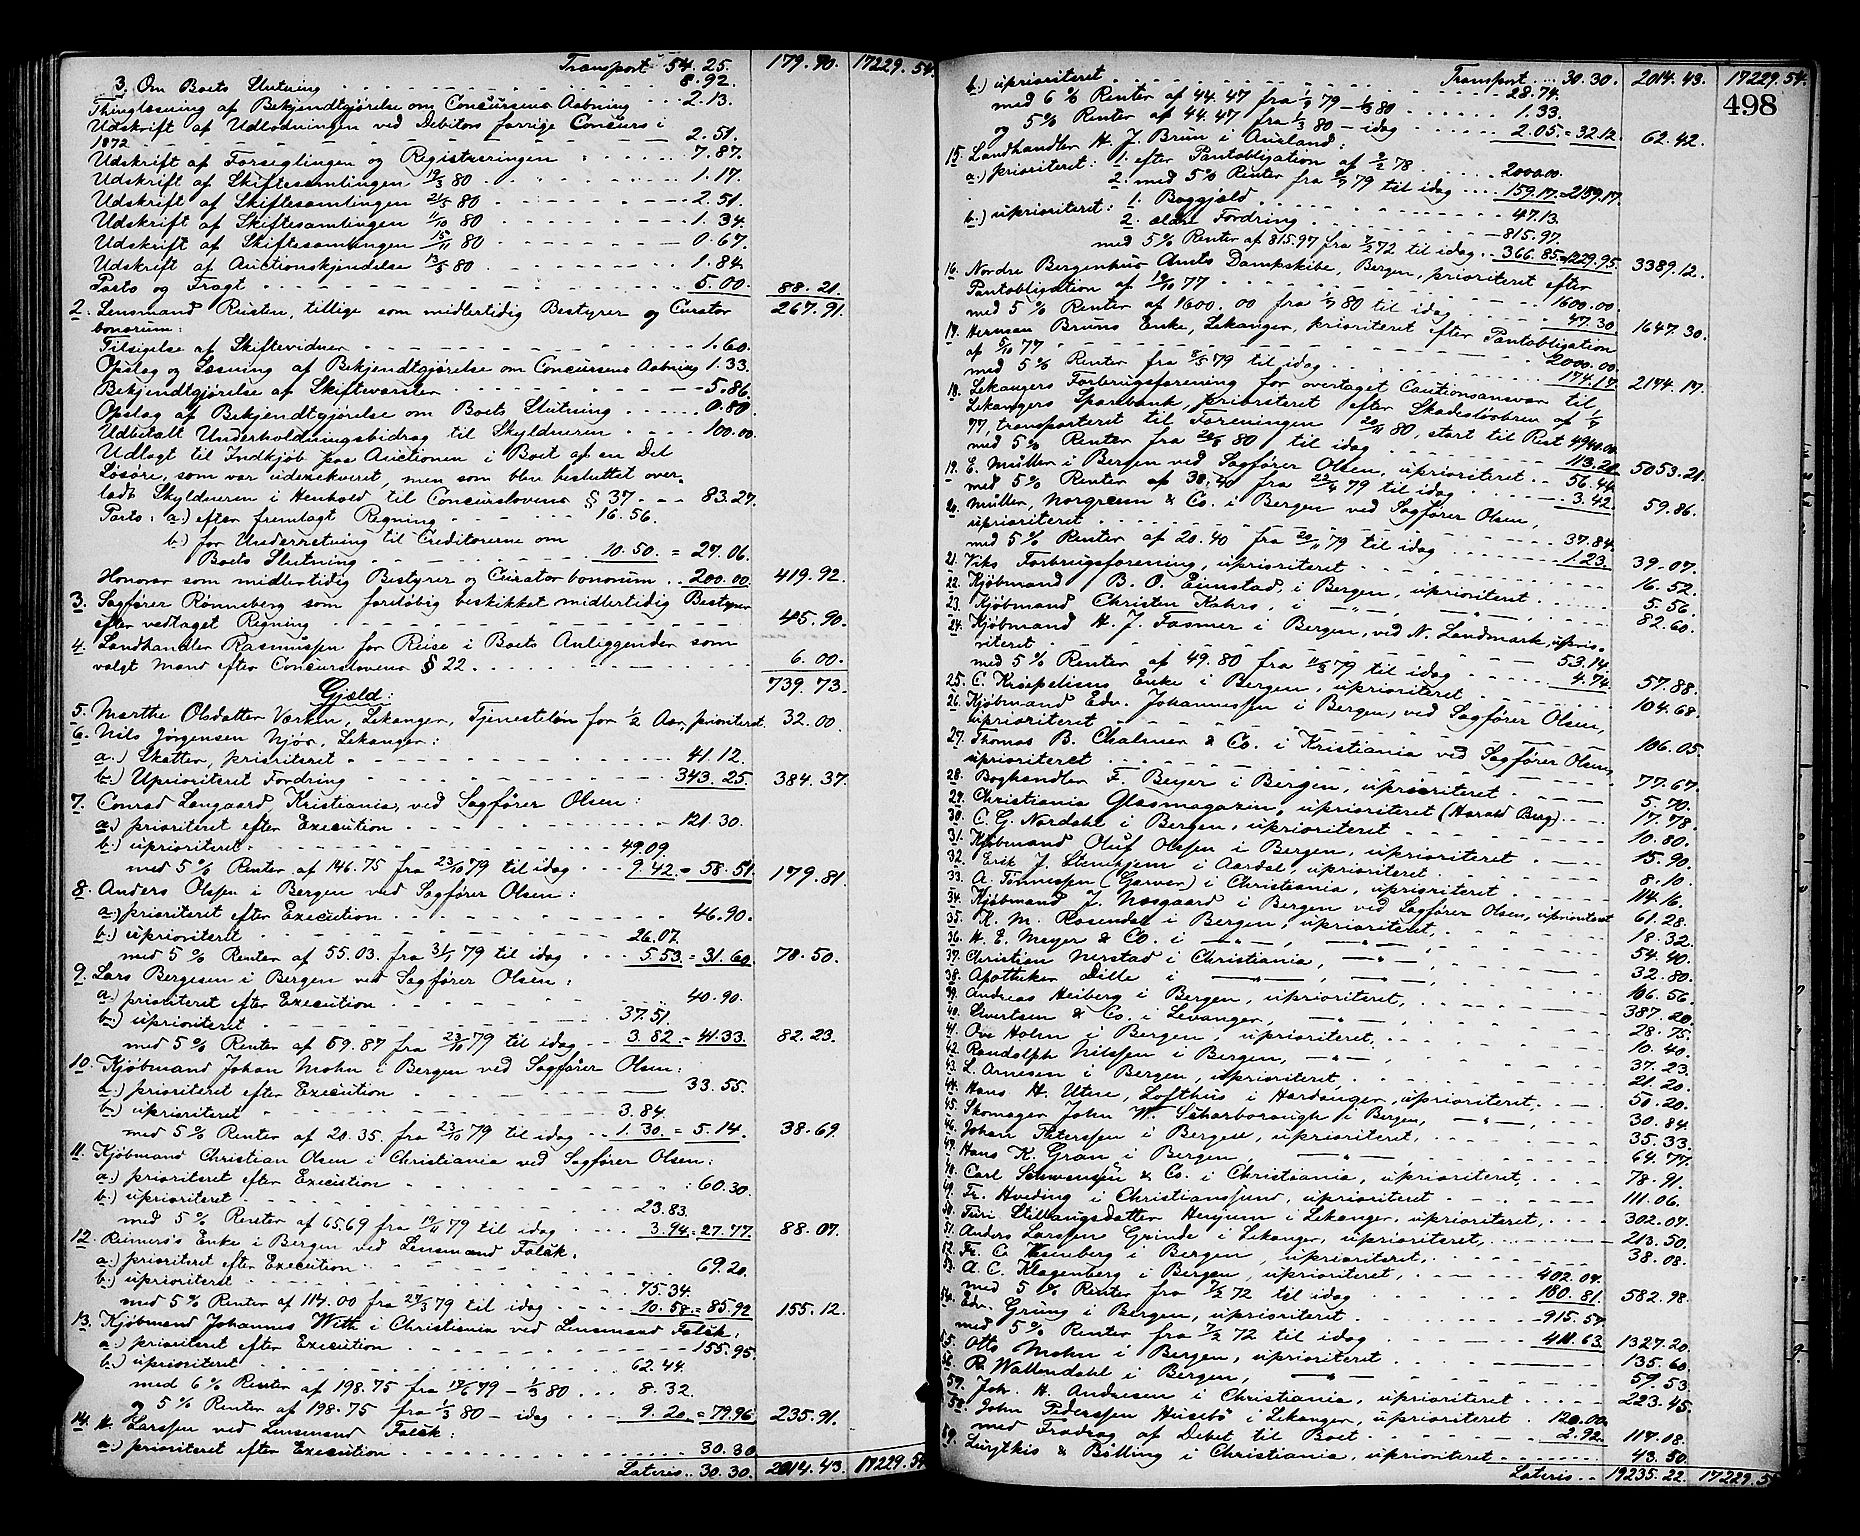 Transport 54.25. 179.90. 17229.54.
3. Om Boets Slutning 8.92.
Thinglæsning af Bekjendtgjørelse om Concursens Aabning 2.13.
Udskrift af Udlodningen ved Debitors forrige Concurs i
1872 2.51.
Udskrift af Forseglingen og Registreringen 7.87.
Udskrift af Skiftesamlingen 19/3 80 1.17.
Udskrift af Skiftesamlingen 21/5 80 2.51.
Udskrift af Skiftesamlingen 11/10 80 1.34.
Udskrift af Skiftesamlingen 15/11 80 0.67.
Udskrift af Auctionskjendelse 13/5 80 1.84.
Porto og Fragt 5.00. 88.21.
2. Lensmand Husten, tillige som midlertidig Bestyrer og Curator 267.91.
bonorum:
Tilsigelse af Skiftevidner 1.60.
Opslag og Læsning af Bekjendtgjørelse om Concursens Aabning 1.33.
Bekjendtgjørelse af Skiftevarsler 5.86.
Opslag af Bekjendtgjørelse om Boets Slutning 0.80.
Udbetalt Underholdningsbidrag til Skyldneren 100.00.
Udlagt til Indkjøb paa Auctionen i Boet af en Del
Løsøre, som var udexekveret, men som blev besluttet over-
ladt Skyldneren i Henhold til Concurslovens § 37 83.27.
Porto: a.) efter fremlagt Regning 16.56.
b.) for Underretning til Creditorerne om
Boets Slutning 10.50. = 27.06.
Honorar som midlertidig Bestyrer og Curator bonorum 200.00. 419.92.
3. Sagfører Rønneberg som foreløbig beskikket midlertidig Bestyrer
efter vedtaget Regning 45.90.
4. Landhandler Rasmussen for Reise i Boets Anliggender som
valgt Mand efter Concurslovens § 22 6.00.
739.73.
Gjæld:
5. Marthe Olsdatter Værken, Lekanger, Tjenesteløn for 1/2 Aar, prioriteret. 32.00.
6. Nils Jørgensen Njøs, Lekanger:
a.) Skatter, prioriteret 41.12.
b.) Uprioriteret Fordring 343.25. 384.37.
7. Conrad Langaard, Kristiania, ved Sagfører Olsen:
a.) prioriteret efter Execution 121.30.
b.) uprioriteret 49.09
med 5 % Renter af 146.75 fra 23/10 79 til idag 9.42. = 58.51. 179.81.
8. Anders Olsen i Bergen ved Sagfører Olsen:
a.) prioriteret efter Execution 46.90.
b.) uprioriteret 26.07.
med 5 % Renter af 55.03. fra 31/1 79 til idag 5.53. = 31.60. 78.50.
9. Lars Bergesen i Bergen ved Sagfører Olsen:
a.) prioriteret efter Execution 40.90.
b.) uprioriteret 37.51.
med 5 % Renter af 59.87 fra 23/10 79 til idag 3.82. = 41.33. 82.23.
10. Kjøbmand Johan Mohn i Bergen ved Sagfører Olsen:
a.) prioriteret efter Execution 33.55.
b.) uprioriteret 3.84.
med 5 % Renter af 20.35. fra 23/10 79 til idag 1.30. = 5.14. 38.69.
11. Kjøbmand Christian Olsen i Christiania ved Sagfører Olsen:
a.) prioriteret efter Execution 60.30.
b.) uprioriteret 23.83.
med 5 % Renter af 65.69 fra 19/11 79 til idag 3.94. = 27.77. 88.07.
12. Reimers's Enke i Bergen ved Lensmand Falck:
a.) prioriteret efter Execution 69.20.
b.) uprioriteret 75.34.
med 5 % Renter af 114.00 fra 27/3 79 til idag 10.58. = 85.92 155.12.
13. Kjøbmand Johannes With i Christiania ved Lensmand Falck:
a.) prioriteret efter Execution 155.95.
b.) uprioriteret 62.44.
med 6 % Renter af 198.75 fra 17/6 79 – 1/3 80 8.32.
og 5 % Renter af 198.75 fra 1/3 80 – idag 9.20. = 79.96. 235.91.
14. H. Larssen ved Lensmand Falck:
a.) prioriteret efter Execution 30.30
Lateris 30.30. 2014.43. 17229.54.
498
Transport 30.30. 2014.43. 17229.54.
b.) uprioriteret 28.74.
med 6 % Renter af 44.47 fra 1/9 79 – 1/3 80 1.33.
og 5 % Renter af 44.47 fra 1/3 80 – idag 2.05. = 32.12. 62.42.
15. Landhandler H. J. Brun i Aurland:
a.) prioriteret: 1. efter Pantobligation af 2/2 78 2000.00.
2. med 5 % Renter fra 2/9 79 til idag 159.17. = 2159.17.
b.) uprioriteret: 1. Boggjæld 47.13.
2. ældre Fordring 815.97.
med 5 % Renter af 815.97 fra 7/2 72 til idag 366.85. = 1229.95. 3389.12.
16. Nordre Bergenhus Amts Dampskibe, Bergen, prioriteret efter
Pantobligation af 19/10 77 1600.00.
med 5 % Renter af 1600.00 fra 1/9 80 til idag 47.30. 1647.30.
17. Herman Bruns Enke, Lekanger, prioriteret efter Pantobligation
af 5/10 77 2000.00.
med 5 % Renter fra 5/5 79 til idag 174.17. 2174.17.
18. Lekangers Forbrugsforening for overtaget Cautionsansvar til
Lekangers Sparebank, prioriteret efter Skadesløsbrev af 1/9
77, transporteret til Foreningen 20/11 80, stort til Rest 4940.00.
med 5 % Renter fra 20/9 80 til idag 113.21. 5053.21.
19. E. Müller i Bergen ved Sagfører Olsen, uprioriteret 56.44.
med 5 % Renter af 38.40 fra 23/4 79 til idag 3.42. 59.86.
20. Müller, Norgreen & Co. i Bergen ved Sagfører Olsen,
uprioriteret 37.84.
med 5 % Renter af 20.40 fra 20/11 79 til idag 1.23. 39.07.
21. Viks Forbrugsforening, uprioriteret 16.52.
22. Kjøbmand B. O. Eimstad, i Bergen, uprioriteret 5.56.
23. Kjøbmand Christen Kahrs, i —"—, —"— 82.60.
24. Kjøbmand H. J. Fasmer i Bergen, ved N. Landmark, uprio-
riteret 53.14.
med 5 % Renter af 49.80 fra 11/3 79 til idag 4.74. 57.88.
25. C. Krøpeliens Enke i Bergen, uprioriteret 104.68.
26. Kjøbmand Edv. Johannessen i Bergen, ved Sagfører Olsen,
uprioriteret 106.05.
27. Thomas B. Chalmer & Co. i Kristiania ved Sagfører Olsen,
uprioriteret 77.67.
28. Boghandler F. Beyer i Bergen, uprioriteret 5.70.
29. Christiania Glasmagazin, uprioriteret (Harald Berg) 17.78.
30. C. G. Nordahl i Bergen, uprioriteret 10.80.
31. Kjøbmand Oluf Olsen i Bergen, uprioriteret 15.90.
32. Erik J. Stenehjem i Aardal, uprioriteret 8.10.
33. A. Tønnessen (Garver) i Christiania, uprioriteret 114.16.
34. Kjøbmand J. Norgaard i Bergen ved Sagfører Olsen, uprioriteret 61.28.
35. K. M. Rosendal i Bergen, uprioriteret, 18.32.
36. H. E. Meyer & Co. i —"—, —"— 54.40.
37. Christian Nerstad i Christiania, —"— 32.80.
38. Apotheker Dille i —"—, —"— 106.56.
39. Andreas Heiberg i Bergen, uprioriteret, 387.20.
40. Evertsen & Co. i Levanger, —"— 28.75.
41. Ove Holm i Bergen, uprioriteret, 10.40.
42. Randolph Nilssen i Bergen, —"— 37.23.
43. L. Arnesen i Bergen, uprioriteret, 21.20.
44. Hans H. Utne, Lofthus i Hardanger, uprioriteret, 50.20.
45. Skomager John W. Scharborough i Bergen, —"—, 30.84.
46. Johan Petersen i Bergen, uprioriteret, 35.33.
47. Hans K. Gran i Bergen, —"— 64.77.
48. Carl Schwensen & Co. i Christiania, uprioriteret, 78.91.
49. Fr. Hveding i Christianssund, uprioriteret 111.06.
50. Turi Stillaugsdatter Henjum i Lekanger, uprioriteret, 302.07.
51. Anders Larssen Grinde i Lekanger, uprioriteret, 213.50.
52. Fr. C. Isenberg i Bergen, uprioriteret, 38.08.
53. A. C. Klagenberg i Bergen, uprioriteret, 402.07.
med 5 % Renter fra 7/2 72 til idag 180.81. 582.98.
54. Edv. Grung i Bergen, uprioriteret, 915.57.
med 5 % Renter fra 7/2 72 til idag 411.63. 1327.20.
55. Otto Mohn i Bergen, uprioriteret 135.60.
56. R. Wallendahl i Bergen, —"— 57.53.
57. Joh. H. Andresen i Christiania, uprioriteret 223.45.
58. John Pederssen Husebø i Lekanger, uprioriteret 120.00.
med Fradrag af Debet til Boet 2.92. 117.08.
59. & Bølling i Christiania, uprioriteret 43.50.
Lateris 19235.22. 17229.54